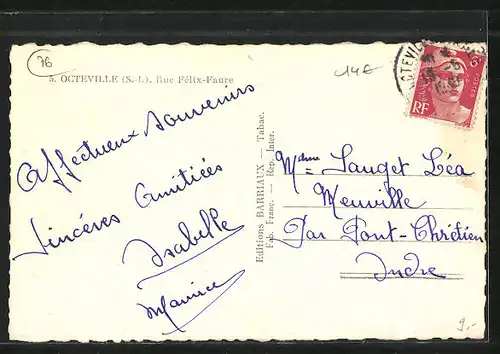 76
5. OCTEVILLE (S.-I.). Rue Félix-Faure
14E
OCTEVILLE
6F
POSTES
RF
Affectueux souvenirs
Sincères Amitiés
Isabelle
Maurice
Editions BARRIAUX — Tabac.
Fab. Franc. — Rep. Inter.
Mdme Sauget Léa
Neuville
Par Pont-Chrétien
Indre
9.-